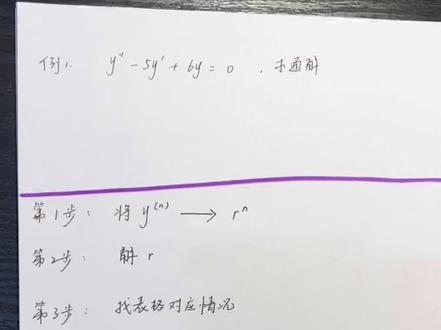 例1. y'' - 5y' + 6y = 0 , 求通解
第1步: 将 y⁽ⁿ⁾ → rⁿ
第2步: 解 r
第3步: 找表格对应情况